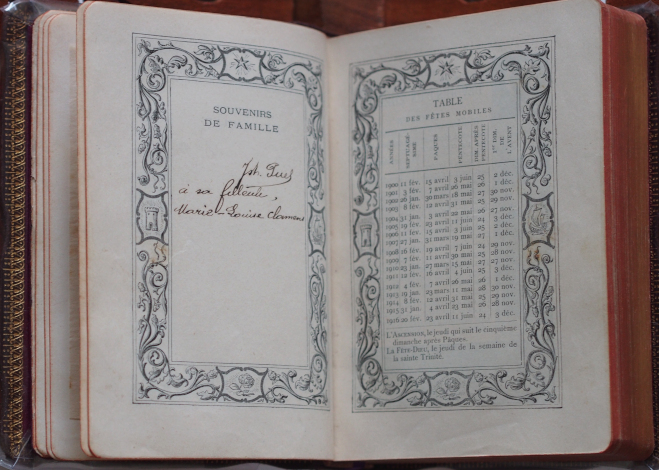 SOUVENIRS
DE FAMILLE
à sa filleule,
Marie-Louise Clamens
TABLE
DES FÊTES MOBILES
ANNÉES SEPTUAGÉ-SIME PAQUES PENTECOTE DIM. APRÈS PENTECOTE 1er DIM. DE L'AVENT
1900 11 fév. 15 avril 3 juin 25 2 déc.
1901 3 fév. 7 avril 26 mai 26 1 déc.
1902 26 jan. 30 mars 18 mai 27 30 nov.
1903 8 fév. 12 avril 31 mai 25 29 nov.
1904 31 jan. 3 avril 22 mai 26 27 nov.
1905 19 fév. 23 avril 11 juin 24 3 déc.
1906 11 fév. 15 avril 3 juin 25 2 déc.
1907 27 jan. 31 mars 19 mai 27 1 déc.
1908 16 fév. 19 avril 7 juin 24 29 nov.
1909 7 fév. 11 avril 30 mai 25 28 nov.
1910 23 jan. 27 mars 15 mai 27 27 nov.
1911 12 fév. 16 avril 4 juin 25 3 déc.
1912 4 fév. 7 avril 26 mai 26 1 déc.
1913 19 jan. 23 mars 11 mai 28 30 nov.
1914 8 fév. 12 avril 31 mai 25 29 nov.
1915 31 jan. 4 avril 23 mai 26 28 nov.
1916 20 fév. 23 avril 11 juin 24 3 déc.
L'ASCENSION, le jeudi qui suit le cinquième
dimanche après Pâques.
LA FÊTE-DIEU, le jeudi de la semaine de
la sainte Trinité.